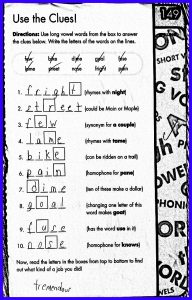 149
Use the Clues!
Directions: Use long vowel words from the box to answer
the clues below. Write the letters of the words on the lines.
few bike dime goal fuse
lame street nose fright pain
1. fright (rhymes with night)
2. street (could be Main or Maple)
3. few (synonym for a couple)
4. lame (rhymes with tame)
5. bike (can be ridden on a trail)
6. pain (homophone for pane)
7. dime (ten of these make a dollar)
8. goal (changing one letter of this
word makes goat)
9. fuse (has the word use in it)
10. nose (homophone for knows)
Now, read the letters in the boxes from top to bottom to find
out what kind of a job you did!
tremendous
SHORT V
PHONIC
VOWE
VELS